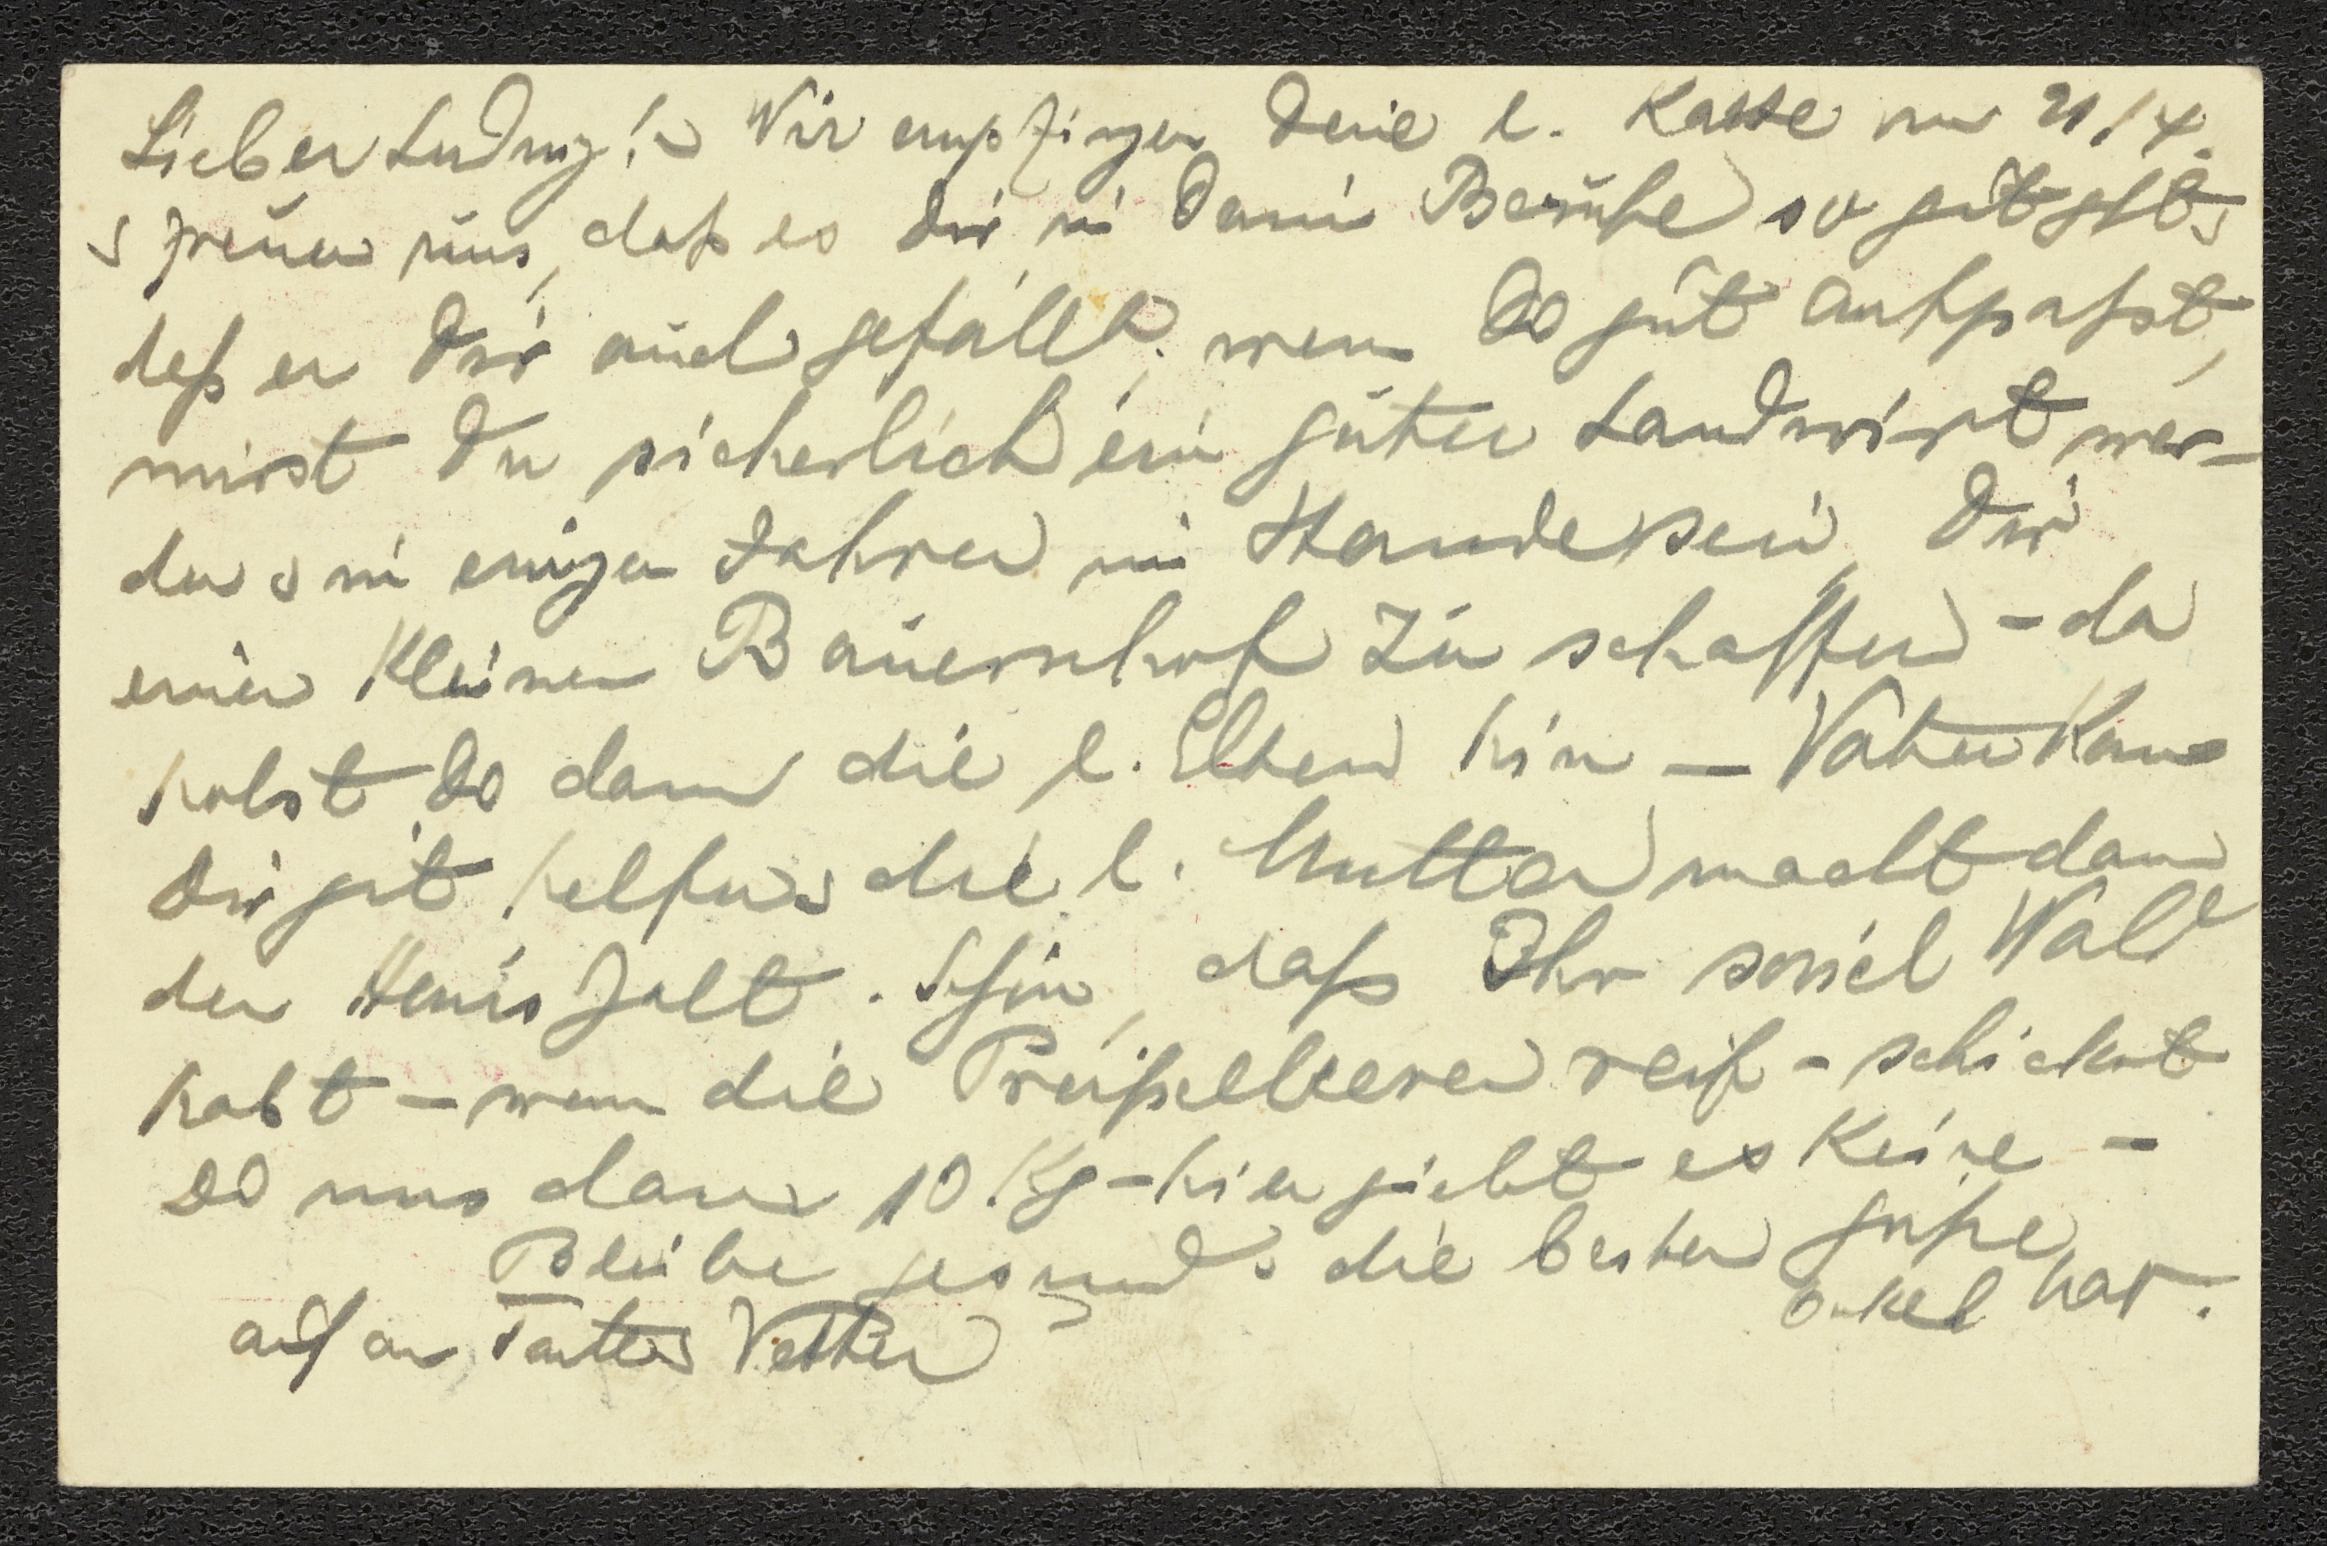 Lieber Ludwig! Wir empfingen Deine l. Karte vom 21/4.
u freuen uns, daß es Dir in Deinem Berufe so gut geht u
daß er Dir auch gefällt; wenn Du gut aufpaßst,
wirst Du sicherlich ein guter Landwirt wer-
den u in einigen Jahren im Stande sein, Dir
einen kleinen Bauernhof zu schaffen - da
holst Du dann die l. Eltern hin - Vater kann
Dir gut helfen u die l. Mutter macht dann
den Haushalt. Schön, daß Ihr soviel Wald
habt - wenn die Preißelbeeren reif - schickst
Du uns dann 10 Kg - hier giebt es keine -
Bleibe gesund u die besten Grüße
Onkel
auf an, Tante u Vetter